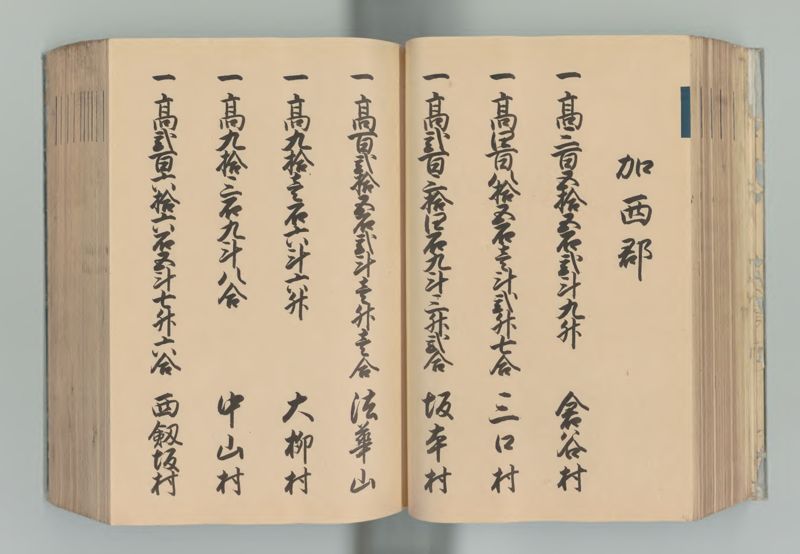 加西郡
一高三百五拾五石弐斗九升 倉谷村
一高四百八拾五石壱斗弐升七合 三口村
一高弐百三拾四石九斗三升弐合 坂本村
一高百弐拾五石弐斗壱升壱合 法華山
一高九拾壱石六斗六升 大柳村
一高九拾三石九斗八合 中山村
一高弐百六拾六石五斗七升六合 西剱坂村